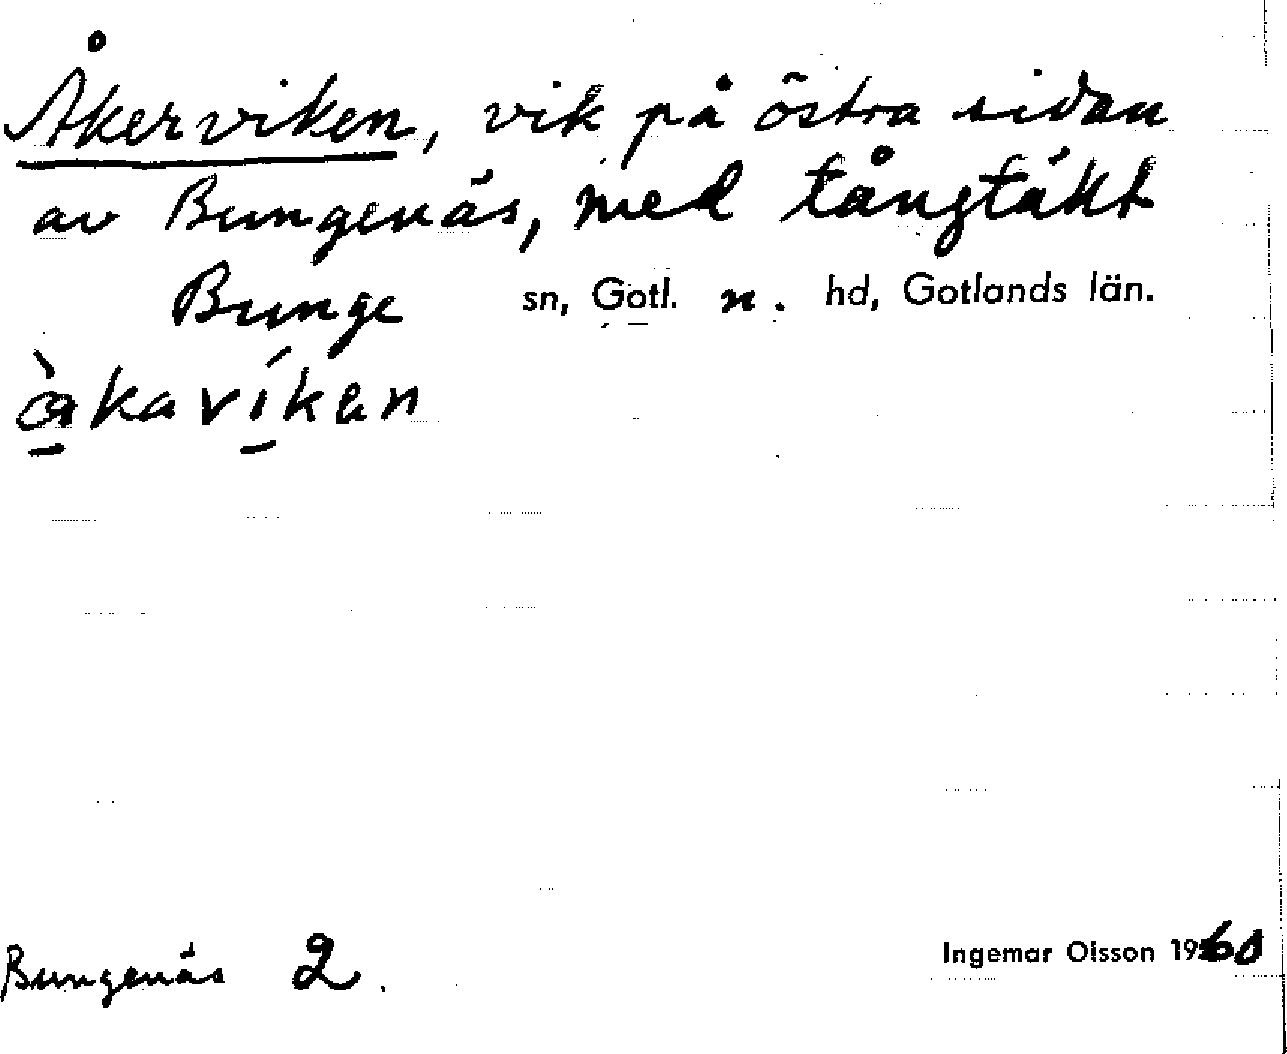 Åkerviken, vik på östra sidan
av Bungenäs, med tångtäkt
Bunge sn, Gotl. n. hd, Gotlands län.
å̱̀kaví̱kan
Bungenäs 2.
Ingemar Olsson 1960